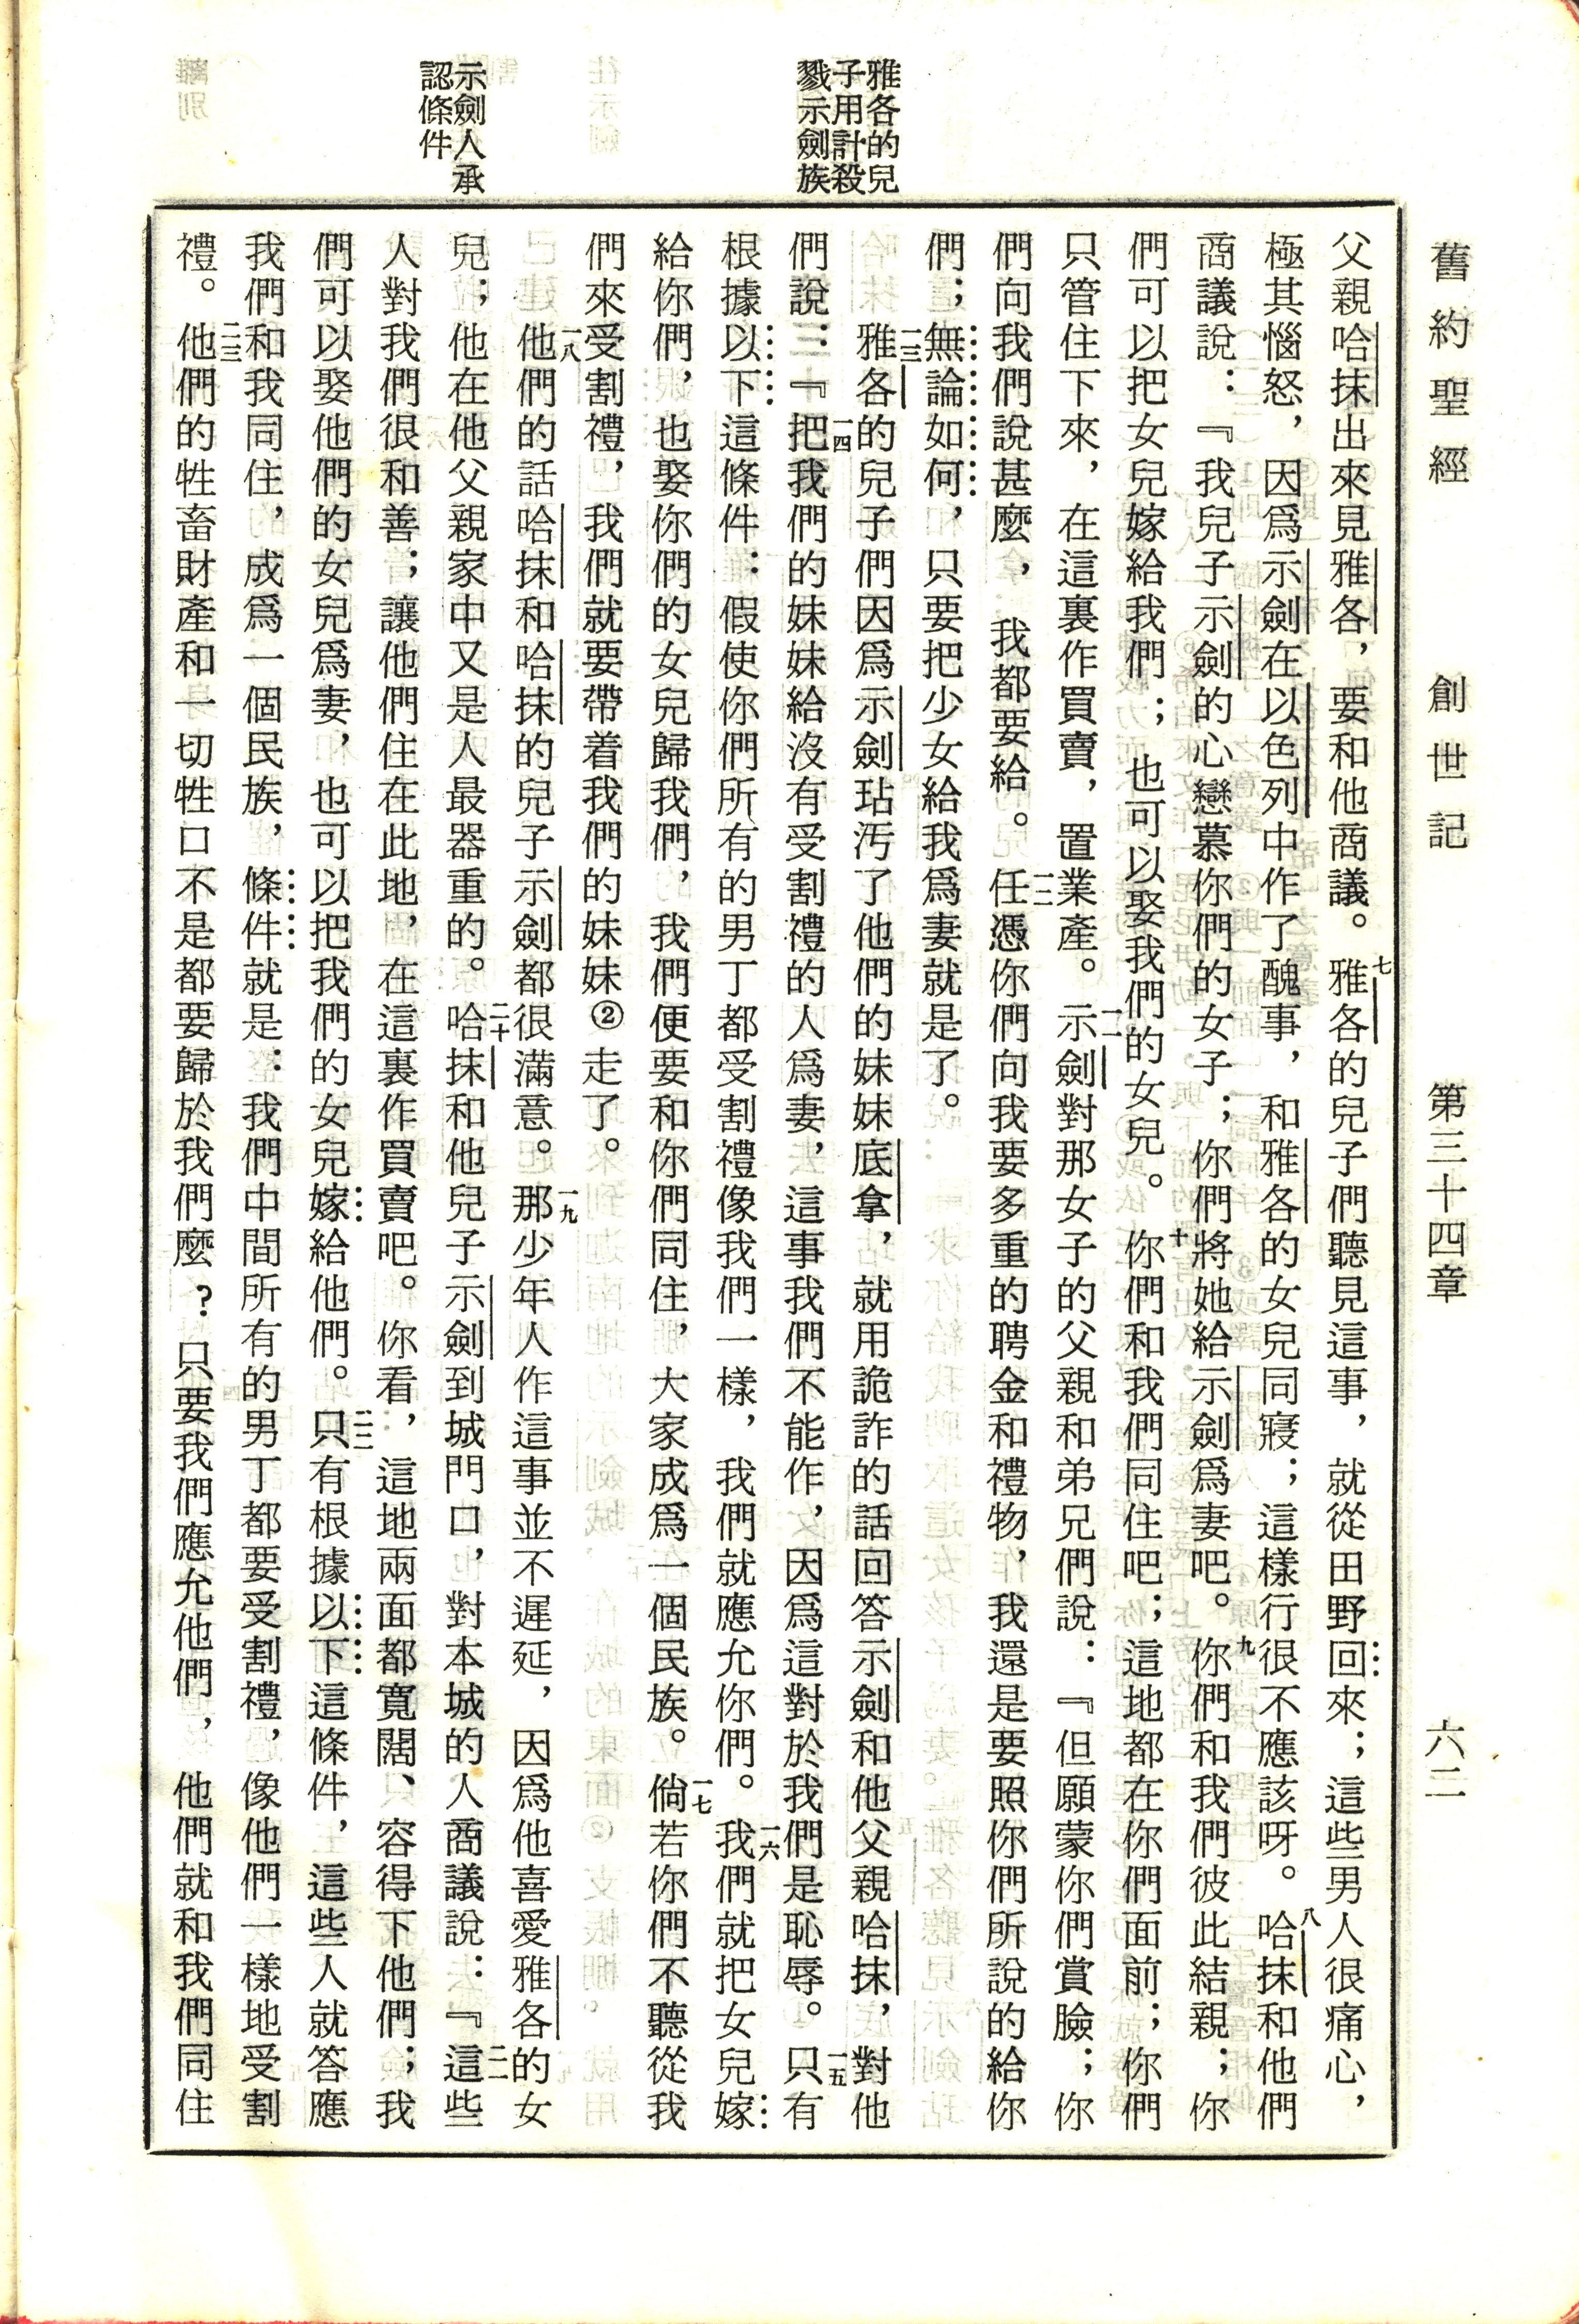 舊約聖經　創世記　第三十四章　六二
雅各的兒
子用計殺
戮示劍族
示劍人承
認條件
父親哈抹出來見雅各，要和他商議。七雅各的兒子們聽見這事，就從田野回來；這些男人很痛心，
極其惱怒，因爲示劍在以色列中作了醜事，和雅各的女兒同寢；這樣行很不應該呀。八哈抹和他們
商議說：『我兒子示劍的心戀慕你們的女子；你們將她給示劍爲妻吧。九你們和我們彼此結親；你
們可以把女兒嫁給我們；也可以娶我們的女兒。十你們和我們同住吧；這地都在你們面前；你們
只管住下來，在這裏作買賣，置業產。一一示劍對那女子的父親和弟兄們說：『但願蒙你們賞臉；你
們向我們說甚麼，我都要給。一二任憑你們向我要多重的聘金和禮物，我還是要照你們所說的給你
們；無論如何，只要把少女給我爲妻就是了。
一三雅各的兒子們因爲示劍玷汚了他們的妹妹底拿，就用詭詐的話回答示劍和他父親哈抹，對他
們說：『一四把我們的妹妹給沒有受割禮的人爲妻，這事我們不能作，因爲這對於我們是恥辱。一五只有
根據以下這條件：假使你們所有的男丁都受割禮像我們一樣，我們就應允你們。一六我們就把女兒嫁
給你們，也娶你們的女兒歸我們，我們便要和你們同住，大家成爲一個民族。一七倘若你們不聽從我
們來受割禮，我們就要帶着我們的妹妹②走了。
一八他們的話哈抹和哈抹的兒子示劍都很滿意。一九那少年人作這事並不遲延，因爲他喜愛雅各的女
兒；他在他父親家中又是人最器重的。二十哈抹和他兒子示劍到城門口，對本城的人商議說：『二一這些
人對我們很和善；讓他們住在此地，在這裏作買賣吧。你看，這地兩面都寬闊、容得下他們；我
們可以娶他們的女兒爲妻，也可以把我們的女兒嫁給他們。二二只有根據以下這條件，這些人就答應
我們和我同住，成爲一個民族，條件就是：我們中間所有的男丁都要受割禮，像他們一樣地受割
禮。二三他們的牲畜財產和一切牲口不是都要歸於我們麼？只要我們應允他們，他們就和我們同住